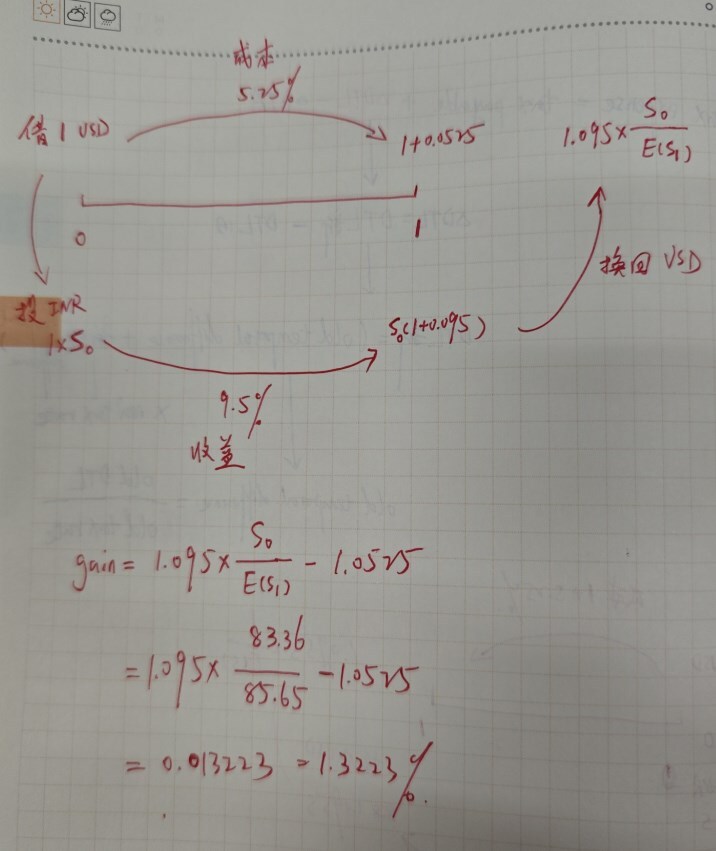 成本
5.25%
借 1 USD
1+0.0525
1.095× S₀/E(S₁)
0
1
换回 USD
投 INR
1×S₀
S₀(1+0.095)
9.5%
收益
gain = 1.095× S₀/E(S₁) - 1.0525
= 1.095× 83.36/85.65 - 1.0525
= 0.013223 = 1.3223%.